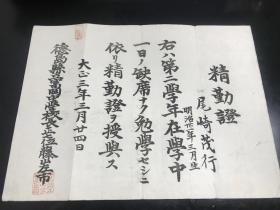 精勤證
尾崎茂行
明治廿 年三月生
右ハ第二學年在學中
一日ノ缺席ナク勉學セシニ
依リ精勤證ヲ授與ス
大正三年三月廿四日
德島縣富岡 學校長正 位